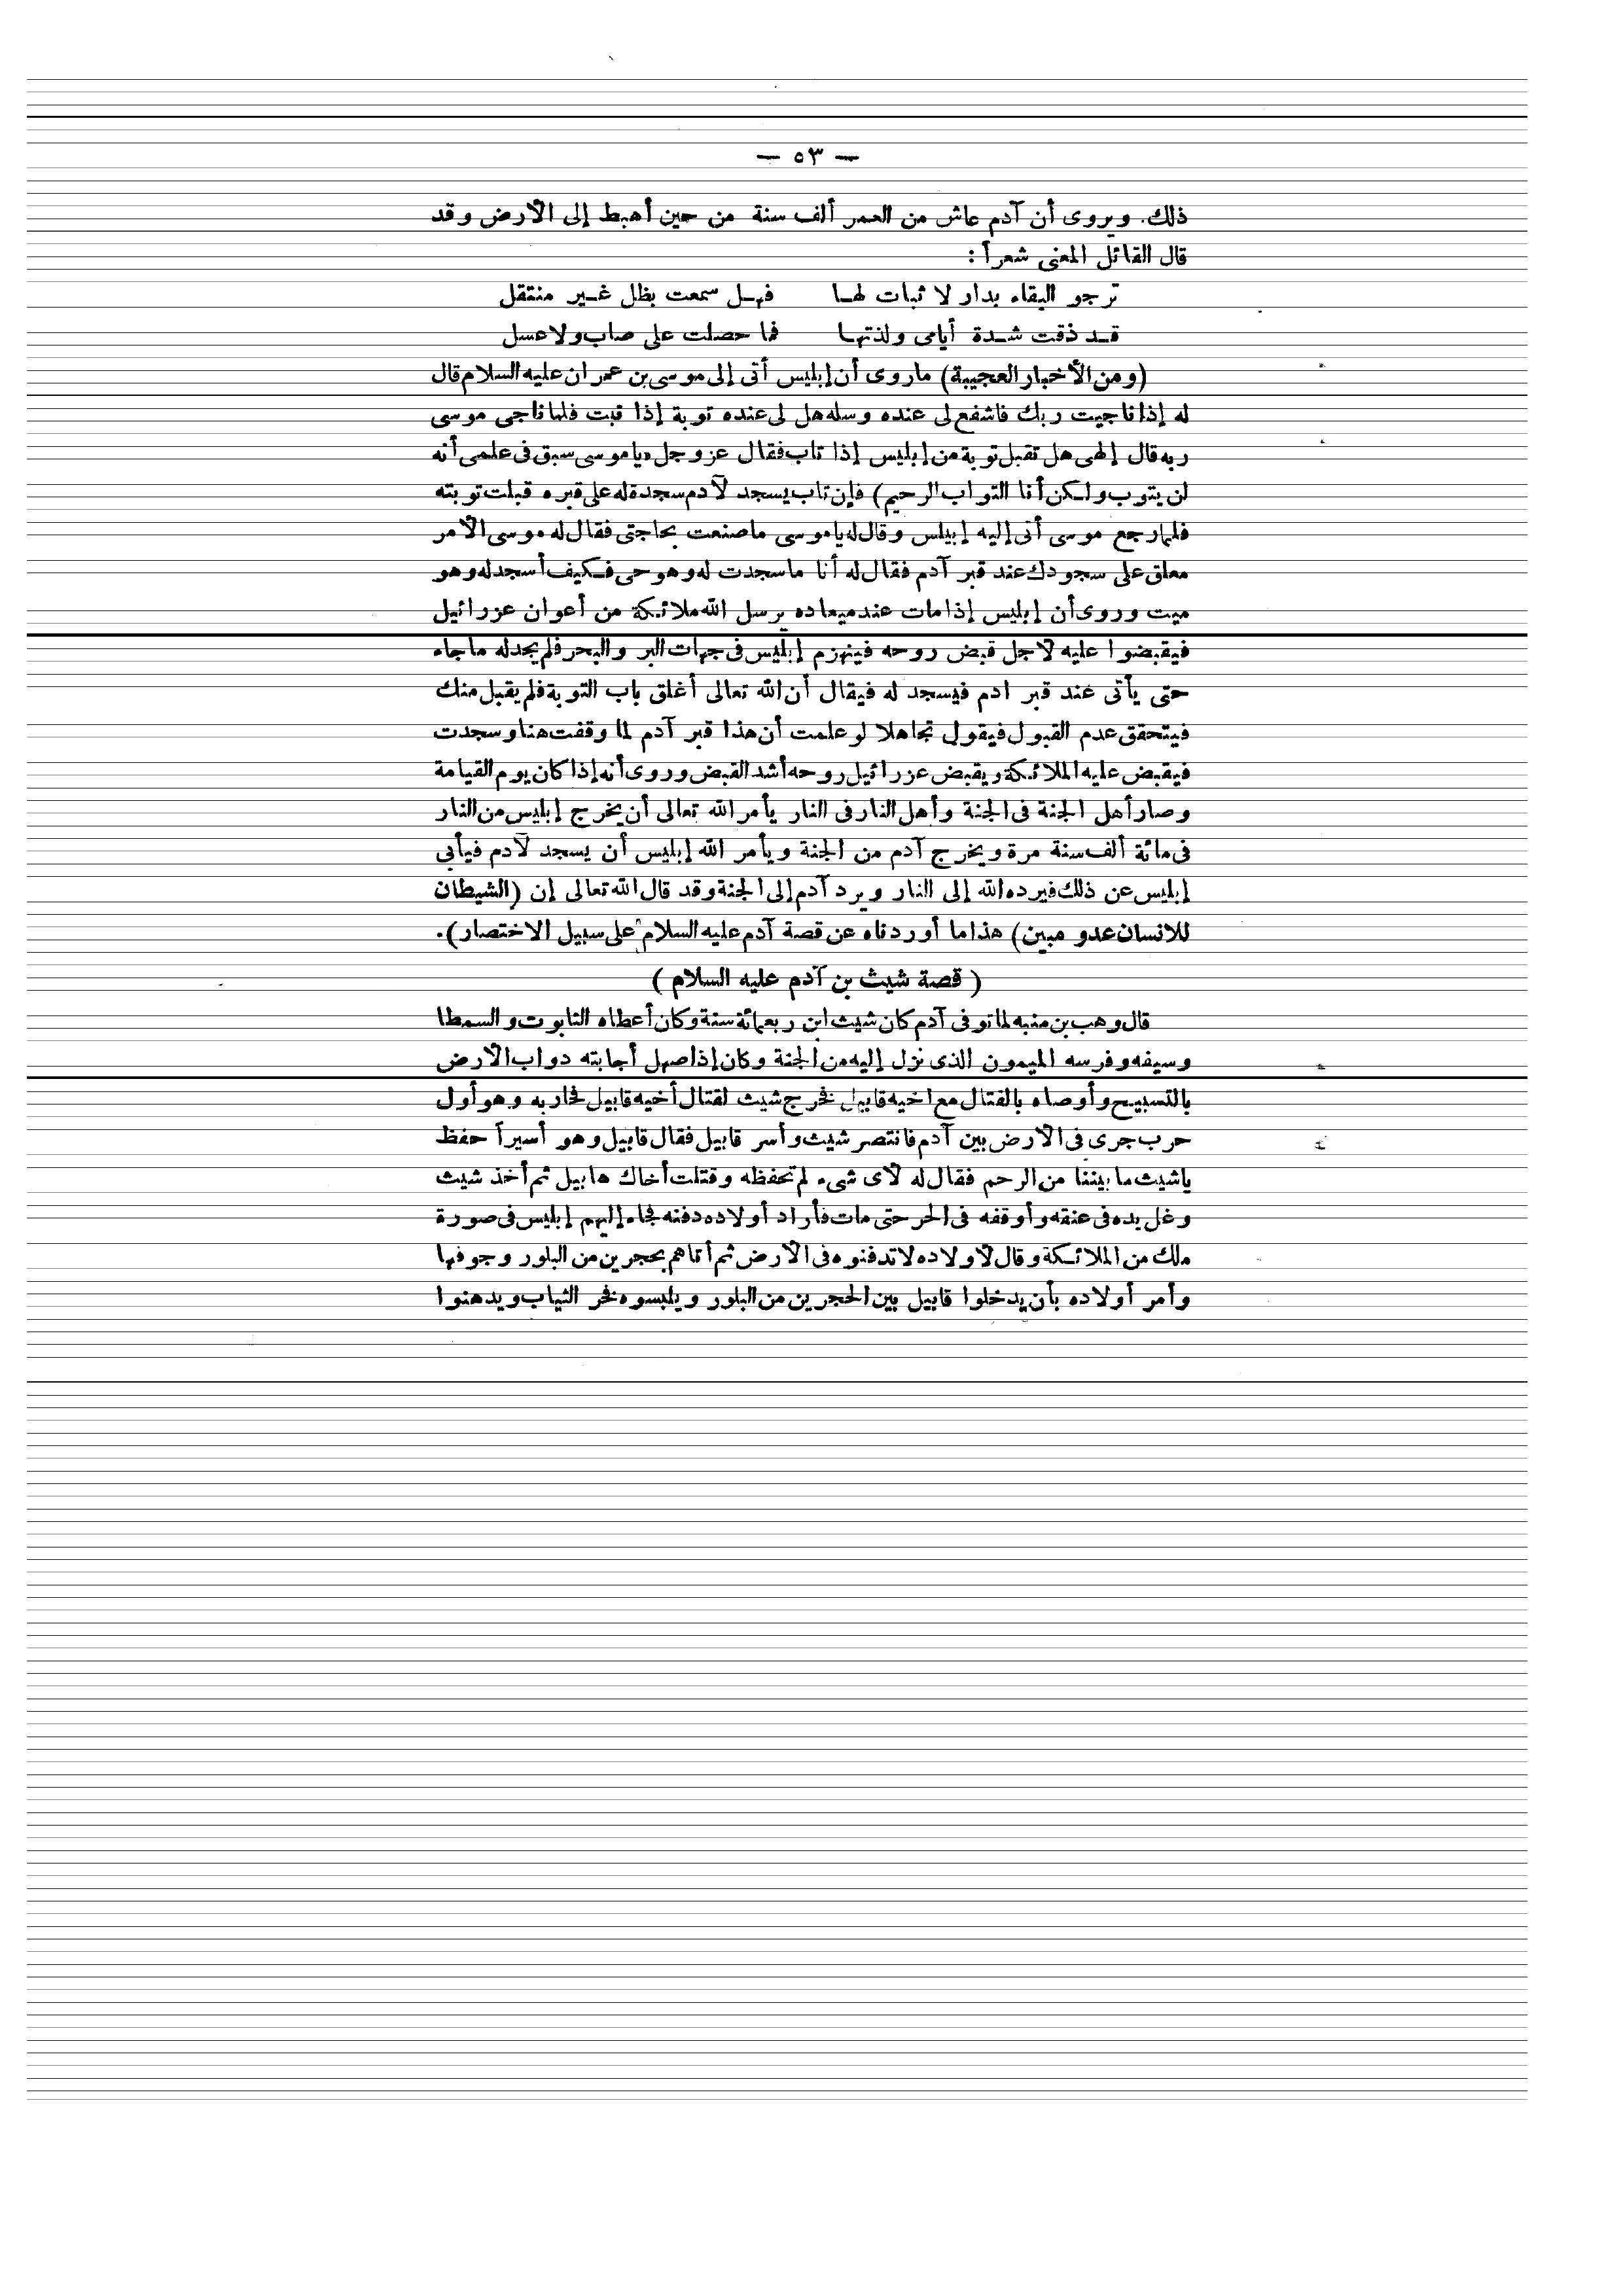 — ٥٣ —
ذلك. ويروى أن آدم عاش من العمر ألف سنة من حين أهبط إلى الأرض وقد
قال القائل المعنى شعراً :
ترجو البقاء بدار لا ثبات لها فهل سمعت بظل غير منتقل
قد ذقت شدة أيامى ولذتها فما حصلت على صاب ولا عسل
(ومن الأخبار العجيبة) ماروى أن إبليس أتى إلى موسى بن عمران عليه السلام قال
له إذا ناجيت ربك فاشفع لى عنده وسله هل لى عنده توبة إذا تبت فلما ناجى موسى
ربه قال إلهى هل تقبل توبة من إبليس إذا تاب فقال عز وجل «ياموسى سبق فى علمى أنه
لن يتوب ولكن أنا التواب الرحيم) فإن تاب يسجد لآدم سجدة له على قبره قبلت توبته
فلما رجع موسى أتى إليه إبيلس وقال له ياموسى ماصنعت بحاجتى فقال له موسى الأمر
معلق على سجودك عند قبر آدم فقال له أنا ماسجدت له وهو حى فكيف أسجد له وهو
ميت وروى أن إبليس إذا مات عند ميعاده يرسل الله ملائكة من أعوان عزرائيل
فيقبضوا عليه لاجل قبض روحه فينهزم إبليس فى جهات البر والبحر فلم يجد له ماجاء
حتى يأتى عند قبر ادم فيسجد له فيقال أن الله تعالى أغلق باب التوبة فلم يقبل منك
فيتحقق عدم القبول فيقول تجاهلا لو علمت أن هذا قبر آدم لما وقفت هنا وسجدت
فيقبض عليه الملائكة ويقبض عزرائيل روحه أشد القبض وروى أنه إذا كان يوم القيامة
وصار أهل الجنة فى الجنة وأهل النار فى النار يأمر الله تعالى أن يخرج إبليس من النار
فى مائة ألف سنة مرة ويخرج آدم من الجنة ويأمر الله إبليس أن يسجد لآدم فيأبى
إبليس عن ذلك فيرده الله إلى النار ويرد آدم إلى الجنة وقد قال الله تعالى إن (الشيطان
للانسان عدو مبين) هذا ما أوردناه عن قصة آدم عليه السلام على سبيل الاختصار).
( قصة شيث بن آدم عليه السلام )
قال وهب بن منبه لما توفى آدم كان شيث ابن ربعمائة سنة وكان أعطاه التابوت والسمطا
وسيفه وفرسه الميمون الذى نزل إليه من الجنة وكان إذا صهل أجابته دواب الارض
بالتسبيح وأوصاه بالقتال مع اخيه قابيل فخرج شيث لقتال أخيه قابيل فحاربه وهو أول
حرب جرى فى الارض بين آدم فانتصر شيث وأسر قابيل فقال قابيل وهو أسيراً حفظ
ياشيث ما بيننا من الرحم فقال له لاى شىء لم تحفظه وقتلت أخاك هابيل ثم أخذ شيث
وغل يده فى عنقه وأوقفه فى الحر حتى مات فأراد أولاده دفنه فجاء إليهم إبليس فى صورة
ملك من الملائكة وقال لاولاده لا تدفنوه فى الارض ثم أتاهم بحجرين من البلور وجوفها
وأمر أولاده بأن يدخلوا قابيل بين الحجرين من البلور ويلبسوه فخر الثياب ويدهنوا